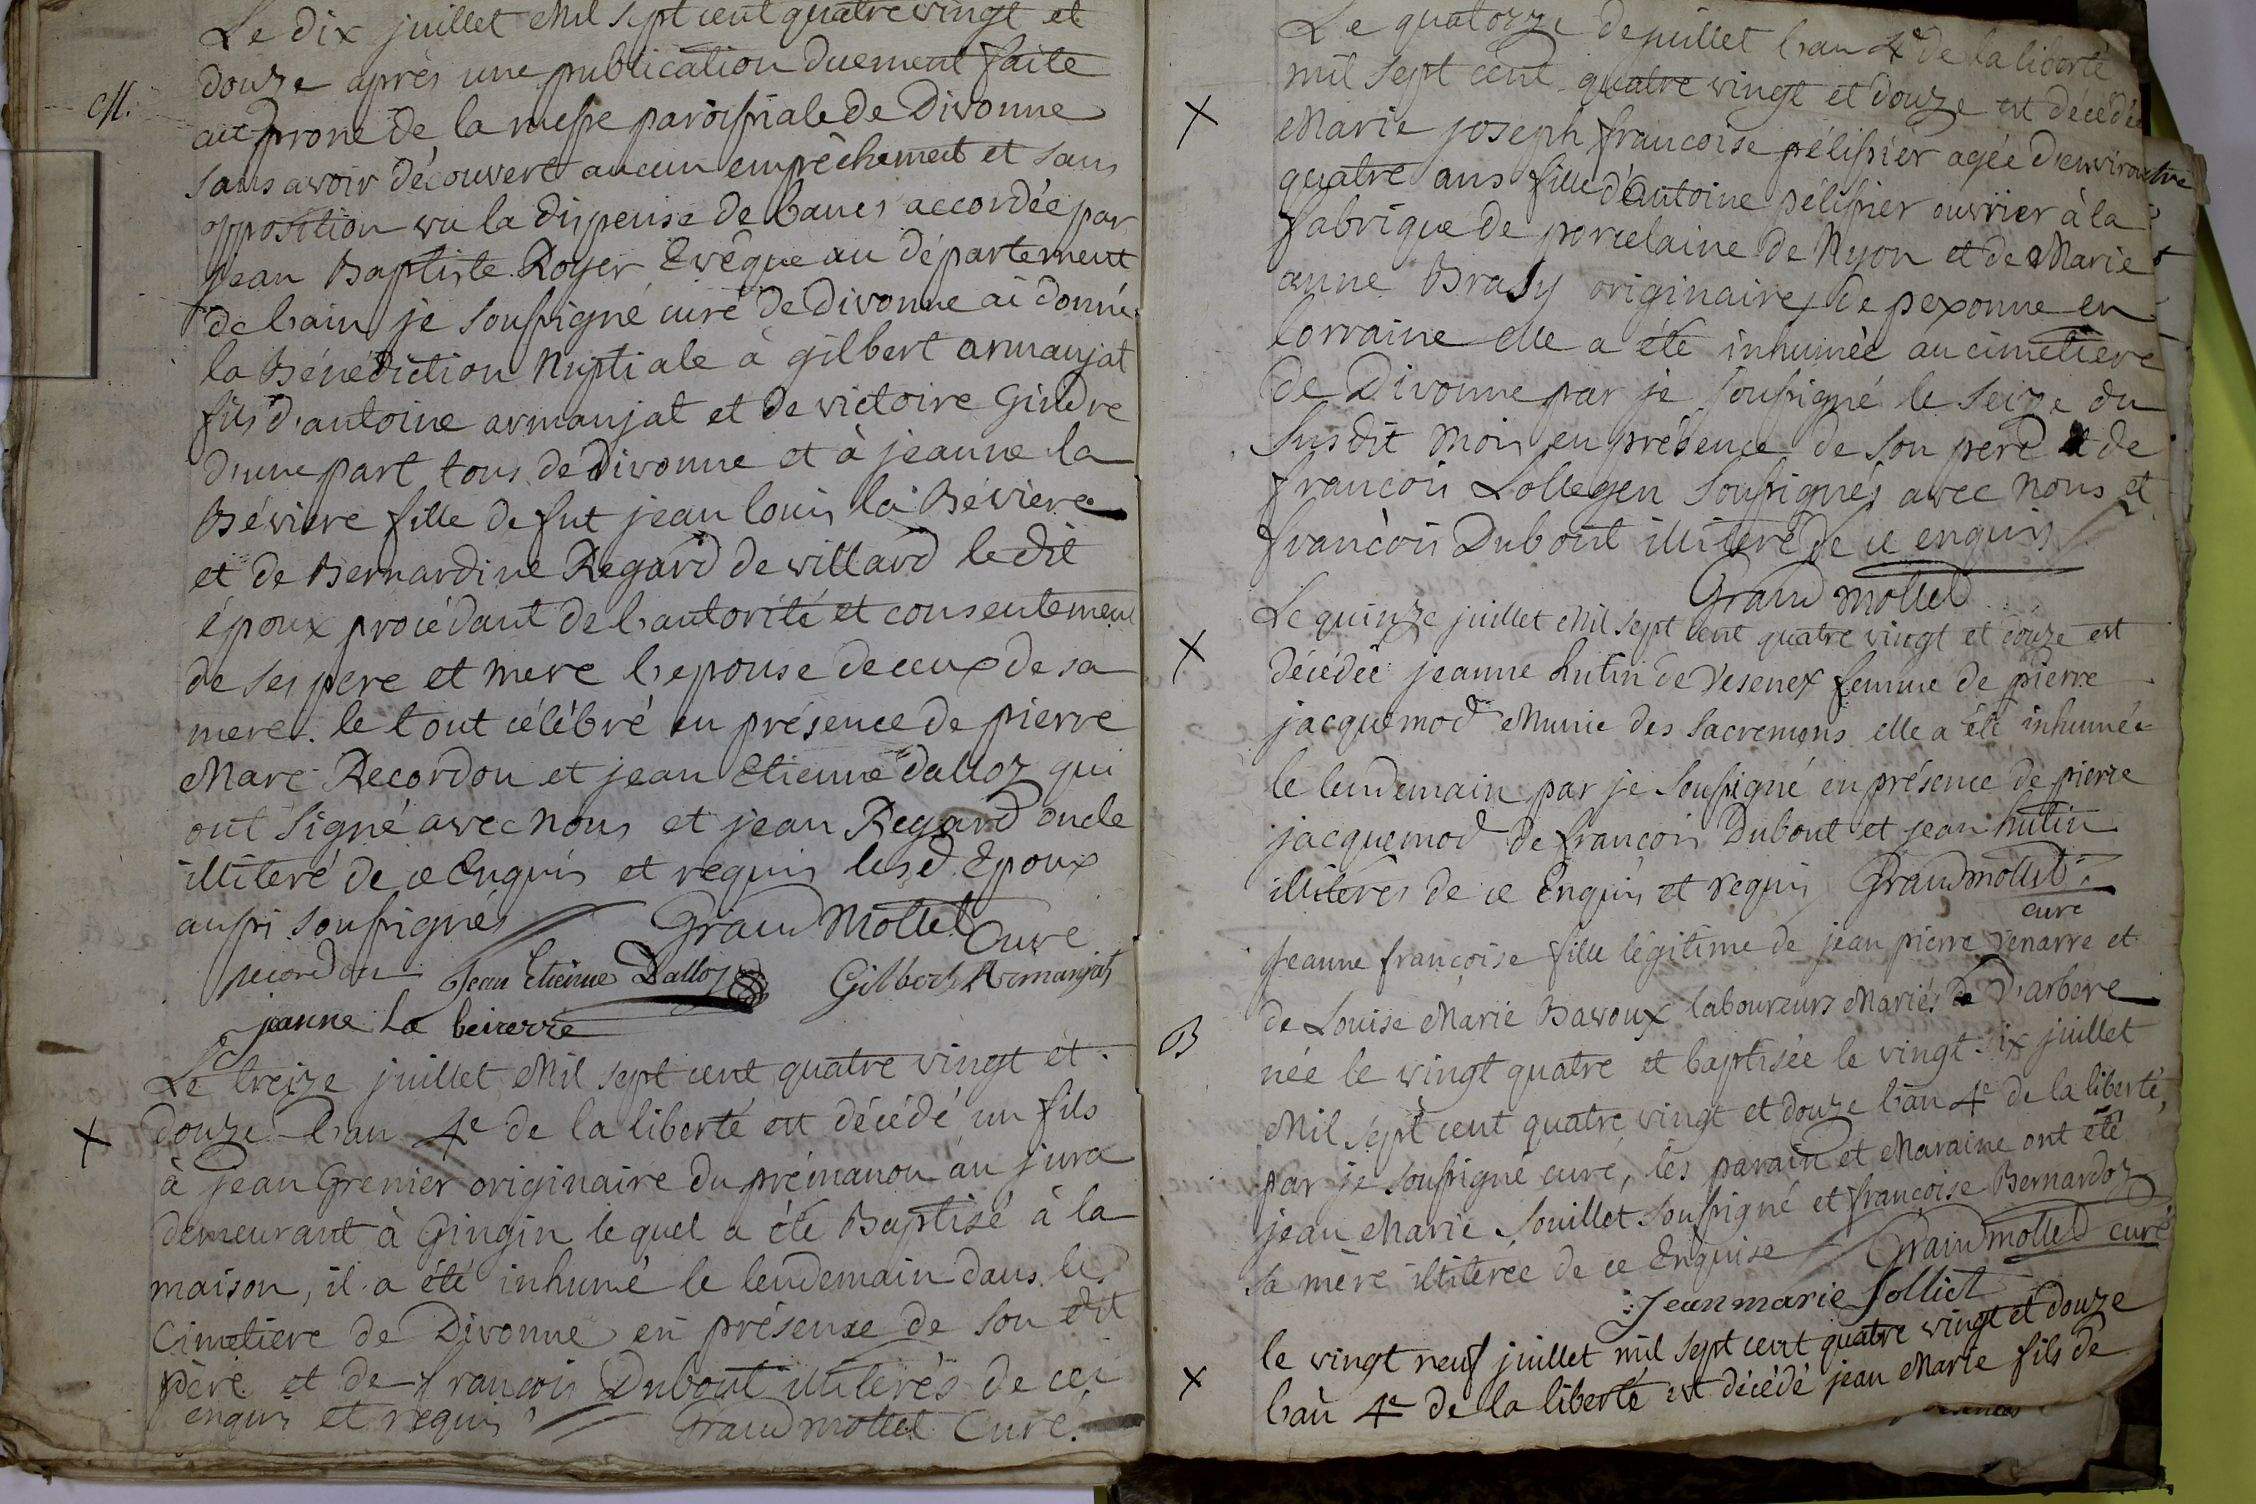 Le dix juillet Mil sept cent quatre vingt et
M.
douze après une publication duement faite
au prone de la messe paroissiale de Divonne
sans avoir découvert aucun empêchement et sans
opposition vu la dispense de bancs accordée par
jean Baptiste Royer Evêque au département
de l'ain je soussigné curé de Divonne ai donné
la Bénédiction Nuptiale à gilbert armanjat
fils d'antoine armanjat et de victoire Gindre
d'une part tous de Divonne et à jeanne la
Béviere fille de fut jean louis la Béviere
et de Bernardine Regard de villard le dit
époux procédant de l'autorité et consentement
de ses pere et mere l'epouse de ceux de sa
mere. le tout célébré en présence de pierre
Marc Recordon et jean Etienne dalloz qui
ont signé avec nous et jean Regard oncle
illiteré de ce Enquis et requis lesd. Epoux
aussi soussignés Grand Mottet Curé
recordon Jean Etienne Dalloz Gilbert Armanjat
jeanne La beivierre
Le treize juillet Mil sept cent quatre vingt et
X
douze l'an 4e de la liberté est décédé un fils
à jean Grenier originaire du prémanon au jura
demeurant à Gingin le quel a été Baptisé à la
maison, il a été inhumé le lendemain dans le
Cimetiere de Divonne en présence de son dit
père et de francois Dubout illiterés de ce
enquis et requis Grand mottet Curé.
Le quatorze de juillet l'an 4e de la liberté
mil sept cent quatre vingt et douze est décédée
X
Marie joseph francoise pélissier agée d'environ
quatre ans fille d'Antoine pélissier ouvrier à la
fabrique de porcelaine de Nyon et de Marie
anne Brasy originaires de pexonne en
lorraine elle a été inhumée au cimetiere
de Divonne par je soussigné le seize du
susdit mois en présence de son pere et de
francois Lollegen soussignés avec nous et
francois Dubout illiteré de ce enquis
Grand mottet
Le quinze juillet Mil sept cent quatre vingt et douze est
X
décédée jeanne hutin de Vesenex femme de pierre
jacquemod Munie des sacremens elle a été inhumée
le lendemain par je soussigné en présence de pierre
jacquemod de francois Dubout et jean hutin
illiterés de ce Enquis et requis Grandmottet
curé
Jeanne françoise fille légitime de jean pierre Venarre et
de Louise Marie Bavoux laboureurs Mariés de D'arbere
B
née le vingt quatre et baptisée le vingt six juillet
Mil sept cent quatre vingt et douze l'an 4e de la liberté,
par je soussigné curé, les parain et Maraine ont été
jean Marie Souillet soussigné et françoise Bernardoz
sa mère illiterée de ce Enquise Grandmottet curé
Jean marie Solliet
le vingt neuf juillet mil sept cent quatre vingt et douze
X
l'an 4e de la liberté est décédé jean Marie fils de